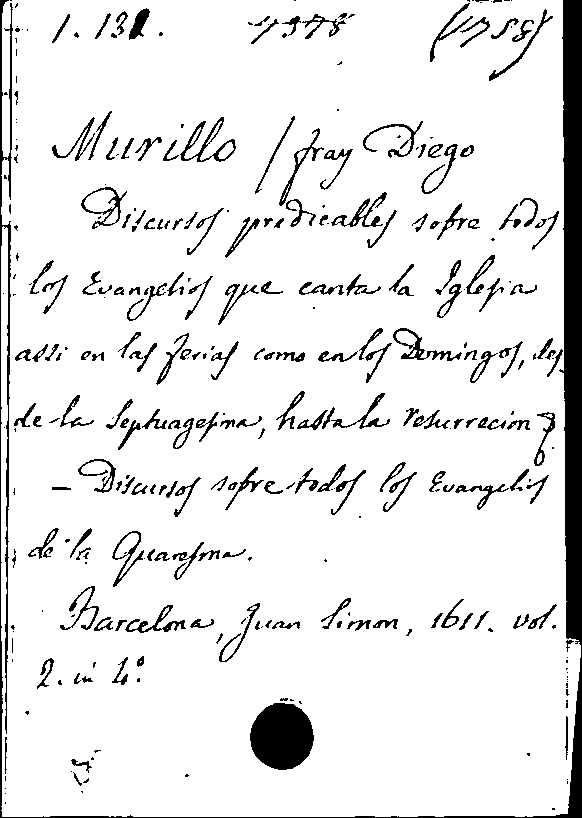 1. 131. 7378 (1758)
Murillo / fray Diego
Discursos predicables sobre todos
los Evangelios que canta la Iglesia
assi en las ferias como en los Domingos, des-
de la Septuagesima, hasta la resurrecion
- Discursos sobre todos los Evangelios
de la Quaresma.
Barcelona, Juan Simon, 1611. vol.
2. in 4º.